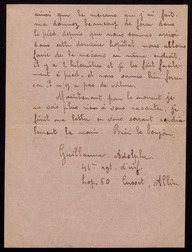 ainsi que la mécano que j'y ai fait.
me donne beaucoup de force dans
le pied depuis que nous sommes arrivés
dans cette dernière hôpital nous allons
faire de la mécano au même endroit,
il y a 2 kilomètres et je les fait facile
ment à pied, et nous sommes bien
car il n'y a pas de
Maintenant pour le moment je
ne vois plus rien à vous raconter je
finit ma lettre en vous serrant cordia
lement la main. Bien le bonjour
Guillaume Adolphe
hop. 50 Cusset, Allier